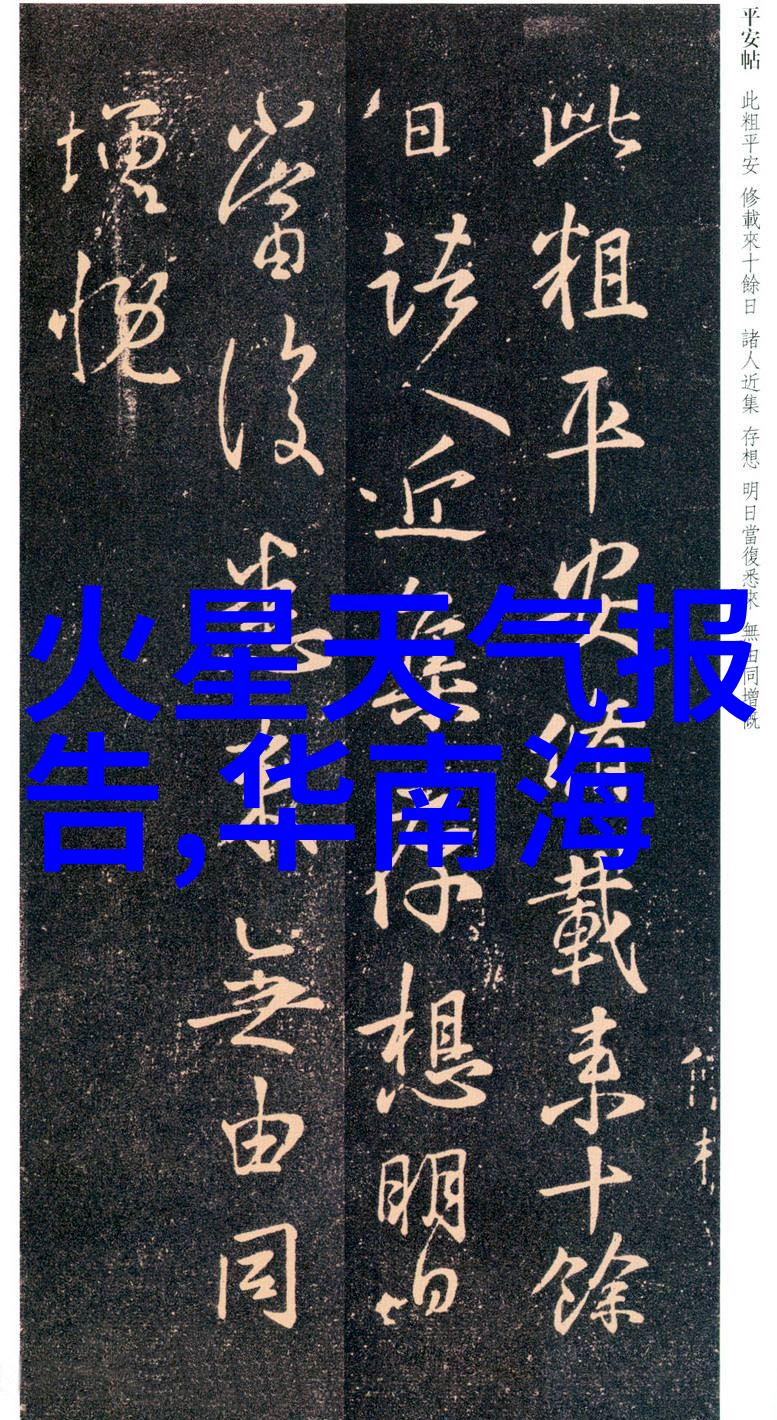 平安帖 此粗平安 修載來十餘日 諸人近集 存想 明日當復悉來 無由同增慨
此粗平安脩載来十餘
日諸人近集存想明日
當復悉来無由同
增慨
火星天气报
告,华南海